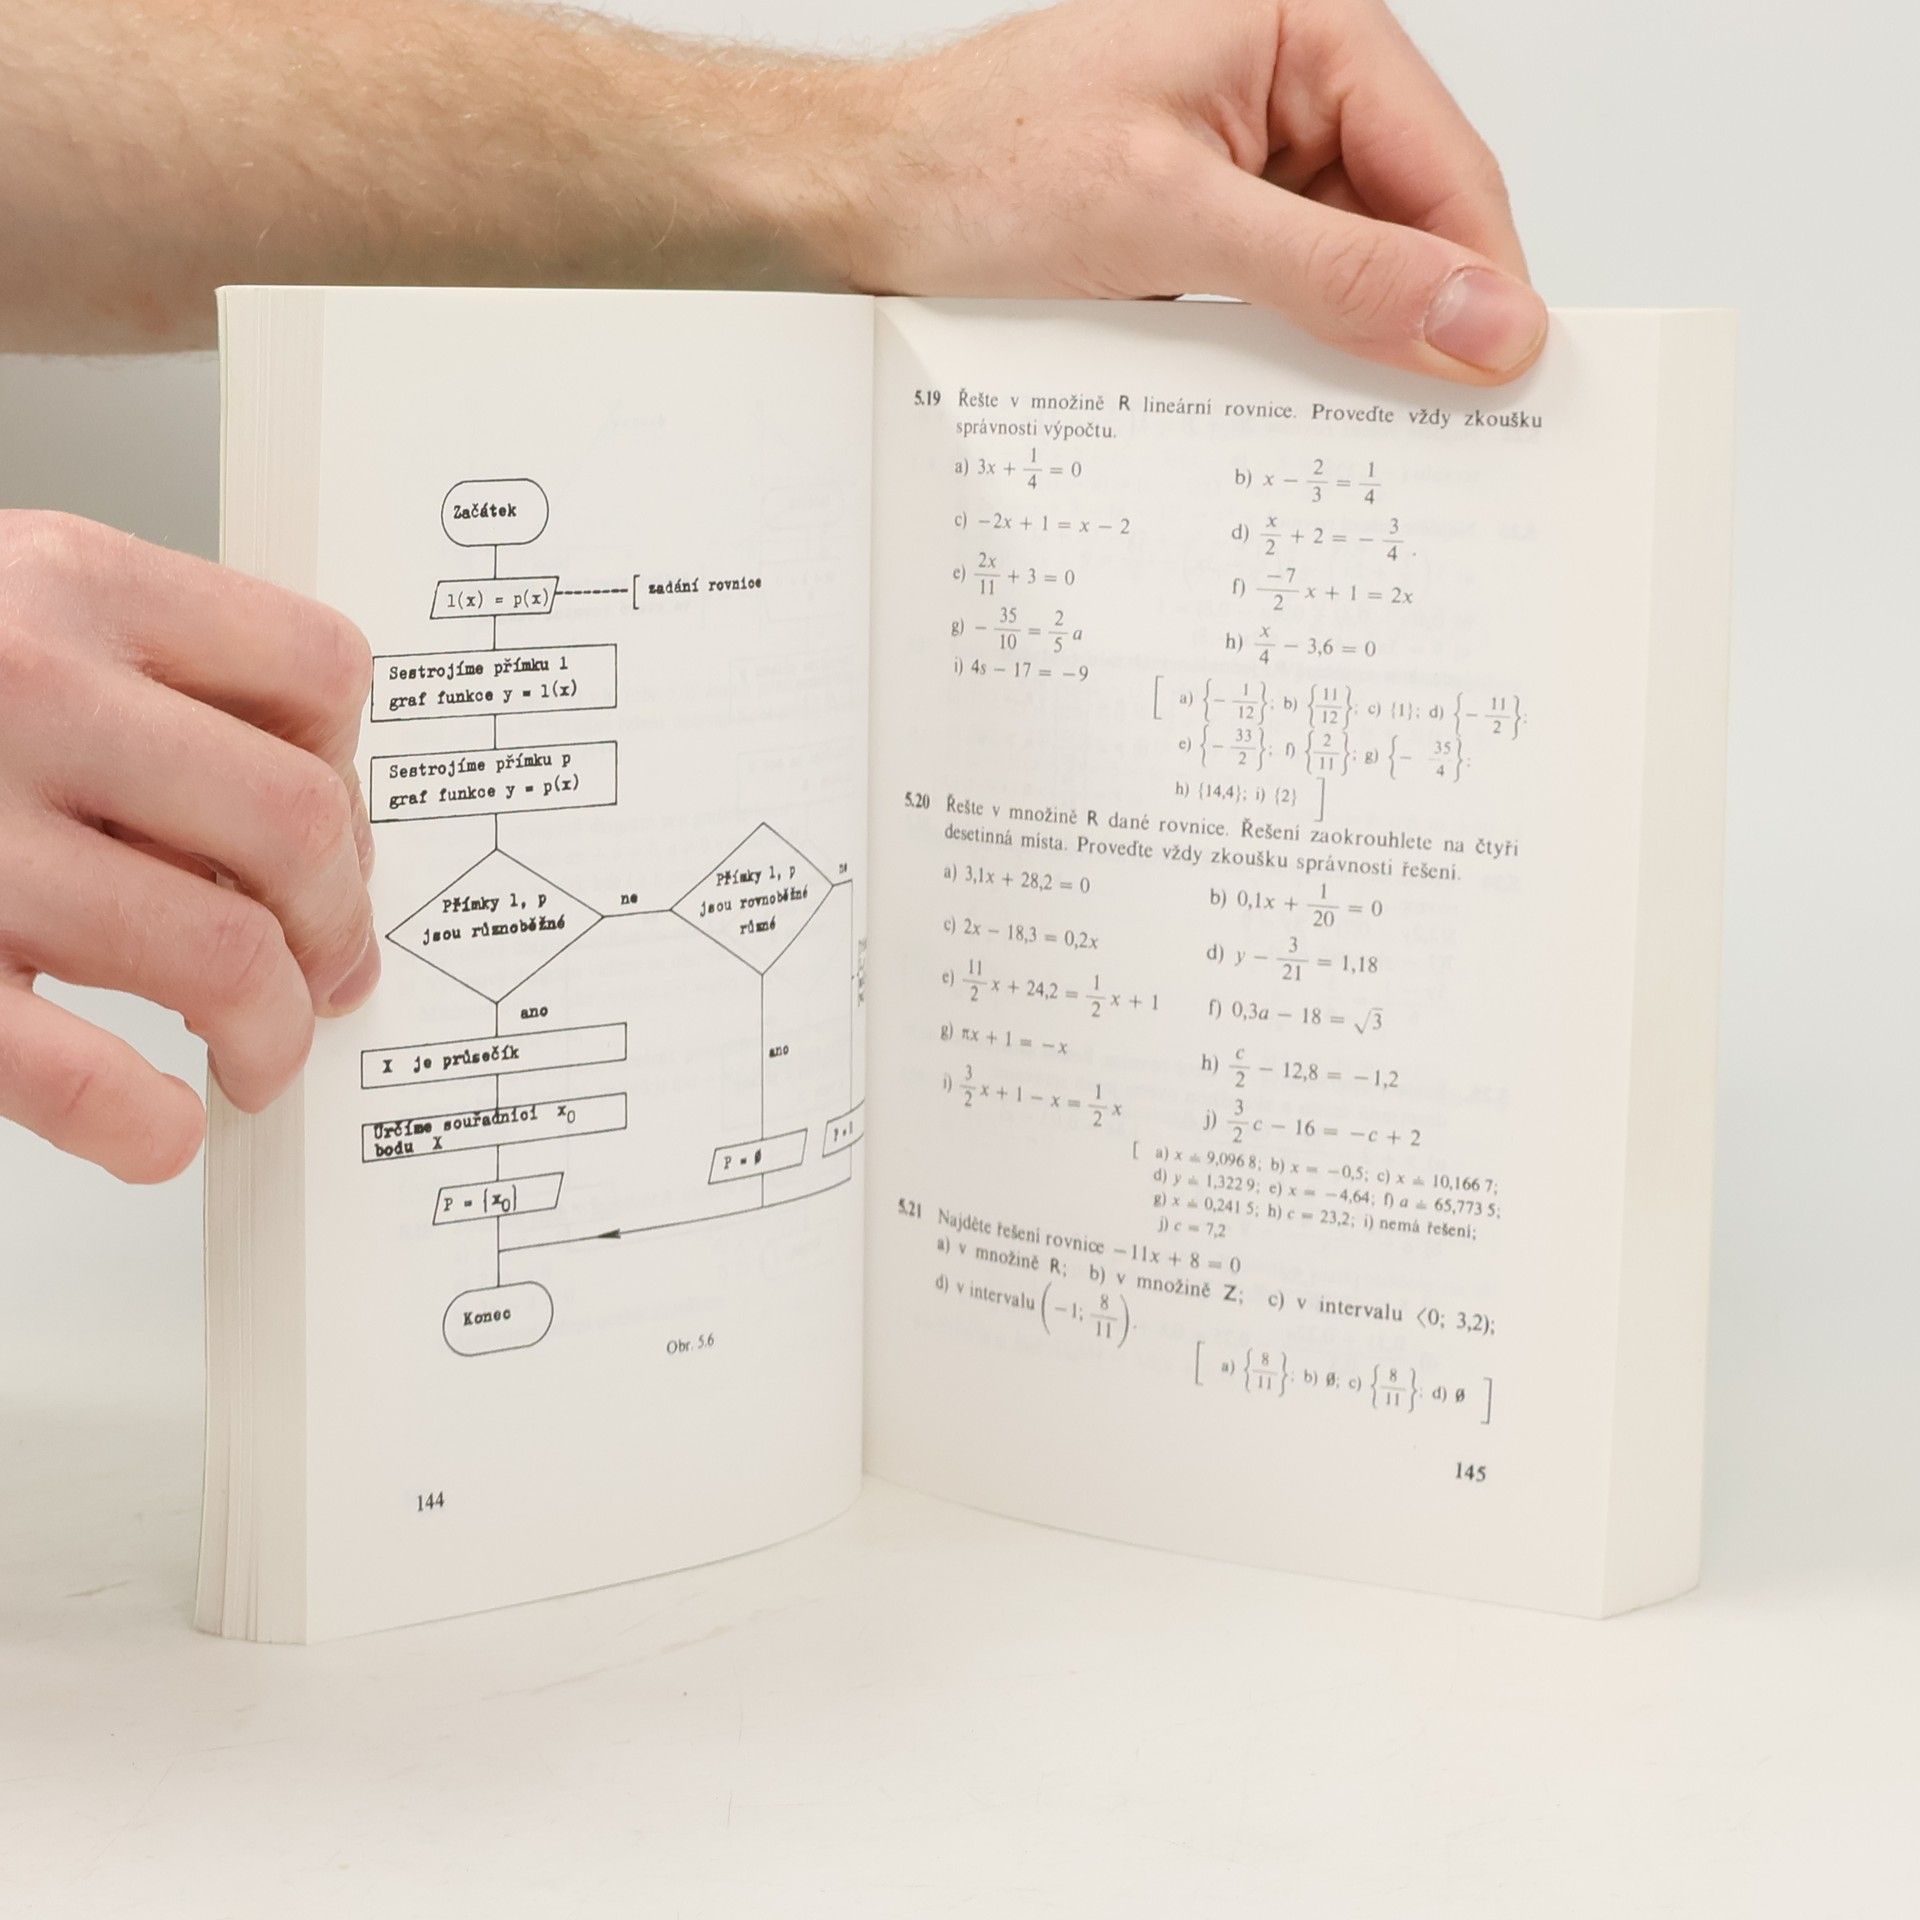 Začátek
l(x) = p(x)
zadání rovnice
Sestrojíme přímku l
graf funkce y = l(x)
Sestrojíme přímku p
graf funkce y = p(x)
Přímky l, p
jsou různoběžné
ne
Přímky l, p
jsou rovnoběžné
různé
ano
ano
X je průsečík
Určíme souřadnici x₀
bodu X
P = {x₀}
P = ∅
Konec
Obr. 5.6
144
5.19 Řešte v množině R lineární rovnice. Proveďte vždy zkoušku
správnosti výpočtu.
a) 3x + 1/4 = 0 b) x − 2/3 = 1/4
c) −2x + 1 = x − 2 d) x/2 + 2 = − 3/4 .
e) 2x/11 + 3 = 0 f) −7/2 x + 1 = 2x
g) − 35/10 = 2/5 a h) x/4 − 3,6 = 0
i) 4s − 17 = −9
[ a) {− 1/12}; b) {11/12}; c) {1}; d) {− 11/2};
e) {− 33/2}; f) {2/11}; g) {− 35/4};
h) {14,4}; i) {2} ]
5.20 Řešte v množině R dané rovnice. Řešení zaokrouhlete na čtyři
desetinná místa. Proveďte vždy zkoušku správnosti řešení.
a) 3,1x + 28,2 = 0 b) 0,1x + 1/20 = 0
c) 2x − 18,3 = 0,2x d) y − 3/21 = 1,18
e) 11/2 x + 24,2 = 1/2 x + 1 f) 0,3a − 18 = √3
g) πx + 1 = −x h) c/2 − 12,8 = −1,2
i) 3/2 x + 1 − x = 1/2 x j) 3/2 c − 16 = −c + 2
[ a) x ≐ 9,096 8; b) x = −0,5; c) x ≐ 10,166 7;
d) y ≐ 1,322 9; e) x = −4,64; f) a ≐ 65,773 5;
g) x ≐ 0,241 5; h) c = 23,2; i) nemá řešení;
j) c = 7,2
5.21 Najděte řešení rovnice −11x + 8 = 0
a) v množině R; b) v množině Z; c) v intervalu ⟨0; 3,2);
d) v intervalu (−1; 8/11).
[ a) {8/11}; b) ∅; c) {8/11}; d) ∅ ]
145